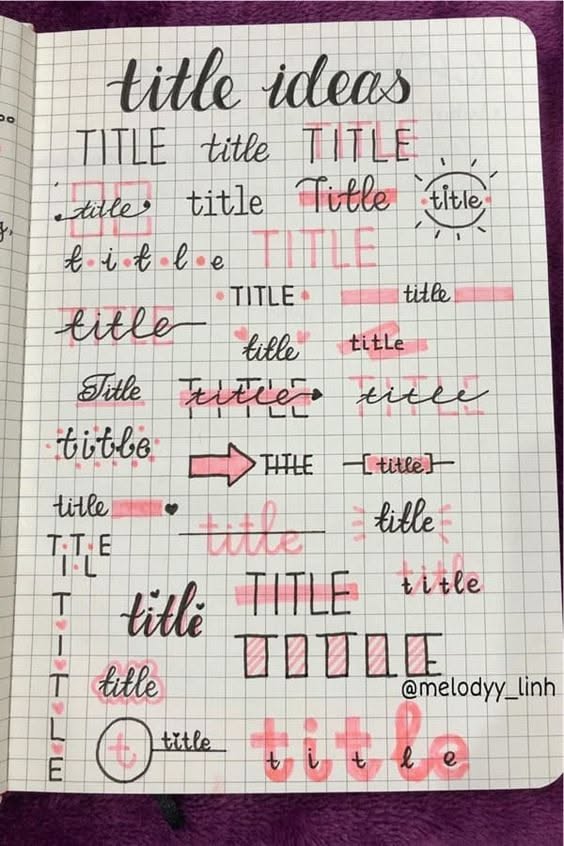 title ideas
TITLE title TITLE
title title Title title
t i t l e TITLE
TITLE title
title
title title
Title title title
title
TITLE [title]
title title
title
T I T L E
TITLE title
title
T I T L E
TITLE
title
@melodyy_linh
t title
title
t i t l e